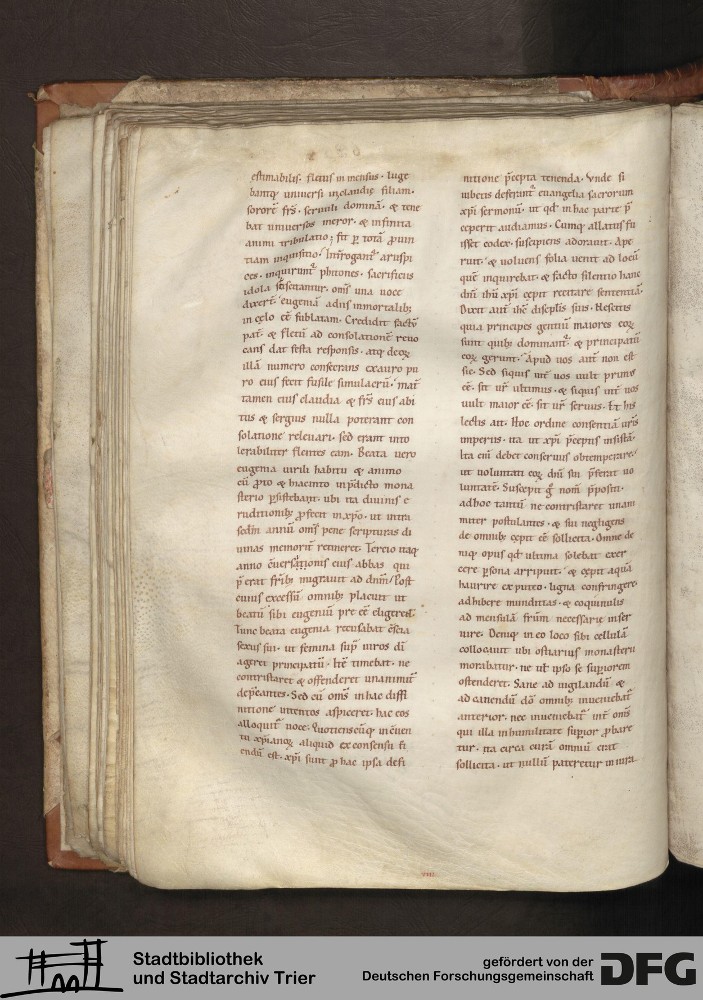 estimabilis. fletus inmensus. luge
bantq; uniuersi in claudię filiam.
sororē fr̄s. seruuli dominā. & tene
bat uniuersos meror. & infinita
animi tribulatio; fit ꝑ totā ꝓuin
tiam inquisitio. Int̄rogant᷑ aruspi
ces. inquirunt᷑ phitones. sacrificiis
idola
una uoce
dixer̄t eugeniā a diis inmortalib;
in cęlo eē sublatam. Credidit
pat᷑. & fletū ad consolationē reuo
cans dat festa responsis. atq; deoꝝ
illā numero consecrans ex auro pu
ro eius fecit fusile simulacrū. mat᷑
tamen eius claudia & fr̄s eius abi
tus & sergius nulla poterant con
solatione releuari. sed erant into
lerabiliter flentes eam. Beata uero
eugenia uirili habitu & animo
cū ꝓto & hiacinto in p̄dicto mona
sterio ꝑsistebant. ubi ita diuinis e
ruditionib; ꝓfecit in xp̄o. ut intra
sedm̄ annū om̄s pene scripturas di
uinas memorit᷑ retineret. Tercio itaq;
anno cuersationis eius abbas qui
p̄erat frīb; migrauit ad dn̄m. Post
cuius excessū omnib; placuit ut
beatū sibi eugeniū pre eē eligerent.
Tunc beata eugenia recusabat
sexus sui. ut femina sup̄ uiros dī
ageret principatū. Itē timebat. ne
contristaret & offenderet unanimit᷑
dep̄cantes. Sed cū om̄s in hac diffi
nitione intentos aspiceret. hac eos
alloquit᷑ uoce. Quotienscūq; in cuen
tu xp̄ianoꝝ aliquid ex consensu fi
endū est. xp̄i sunt ꝓ hac ipsa defi
nitione p̄cepta tenenda. Vnde si
iubetis deferunt᷑ euangelia sacrorum
xp̄i sermonū. ut qd̄ in hac parte p̄
ceperit audiamus. Cumq; allatus fu
isset codex. suscipiens adorauit. Ape
ruit. & uoluens folia uenit ad locū
quē inquirebat. & facto silentio hanc
dn̄i ih̄u xp̄i cępit recitare sententiā.
Dixit aut̄ ih̄s disciplis suis. Nescitis
quia principes gentiū maiores eoꝝ
sunt quib; dominant᷑. & principatū
eoꝝ gerunt. Apud uos aut̄ non est
sic. Sed siquis int̄ uos uult prim᷒
eē. sit ur̄ ultimus. & siquis int̄ uos
uult maior eē. sit ur̄ seruus. Et his
lectis ait. Hoc ordine consentiā ur̄is
imperiis. ita ut xp̄i p̄ceptis insistā.
Ita eni debet conseruis obtemperare.
ut uoluntati eoꝝ dn̄i sui p̄ferat uo
luntatē. Suscepit g̊ nom̄ p̄positi.
ad hoc tantū ne contristaret unani
miter postulantes. & sui negligens
de omnib; cępit eē sollicita. Omne de
niq; opus qd̄ ultima solebat exer
cere ꝑsona arripuit. & cępit aquā
haurire ex puteo. ligna confringere.
adhibere munditias. & coquinulis
ad mensulā fratrum necessarię inser
uire. Deniq; in eo loco sibi cellulā
collocauit ubi ostiarius monasterii
morabatur. ne uł ipso se suꝑiorem
ostenderet. Sane ad uigilandū &
ad canendū dō omnib; inueniebat᷑
anterior. nec inueniebat᷑ int̄ om̄s
qui illā in humilitate suꝑior ꝓbare
tur. ita circa curā omniū erat
sollicita. ut nullū pateretur in iura
VIII
Stadtbibliothek
und Stadtarchiv Trier
gefördert von der
Deutschen Forschungsgemeinschaft
DFG